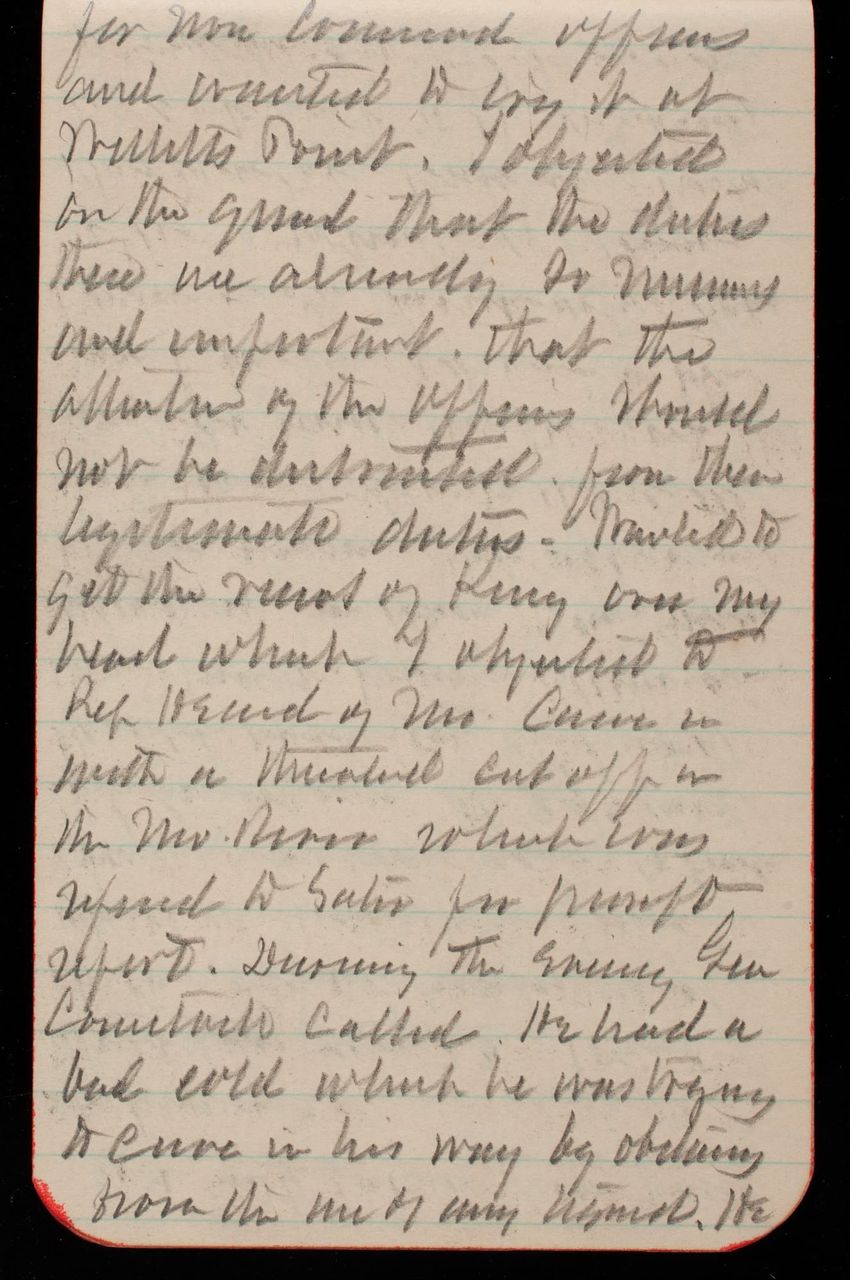 for non Command officers
and wanted to try it at
Willetts Point. I objected
on the ground that the duties
there are already so numerous
and important. that the
attention of the officers should
not be distracted from their
legitimate duties - Wanted to
get the record of King over my
head which I objected to
Rep Heard of Mo. Came in
with a threatened cut off in
the Mo. River which was
referred to Suter for prompt
report. During the evening Gen
Comstock called. He had a
bad cold which he was trying
to cure in his way by abstaining
from the use of any liquid. He